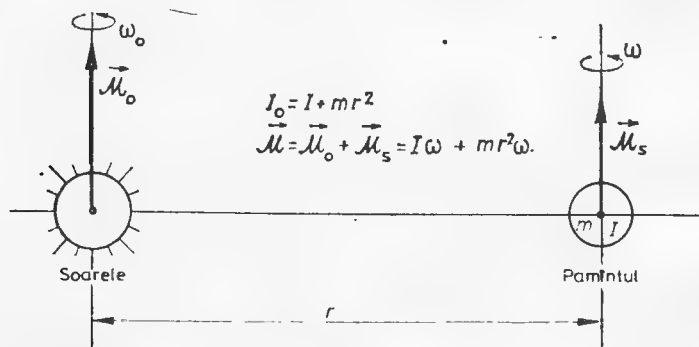 ω₀
ω
ℳ⃗₀
I₀ = I + mr²
ℳ⃗ = ℳ⃗₀ + ℳ⃗ₛ = Iω + mr²ω.
ℳ⃗ₛ
m I
Soarele
Pamîntul
r